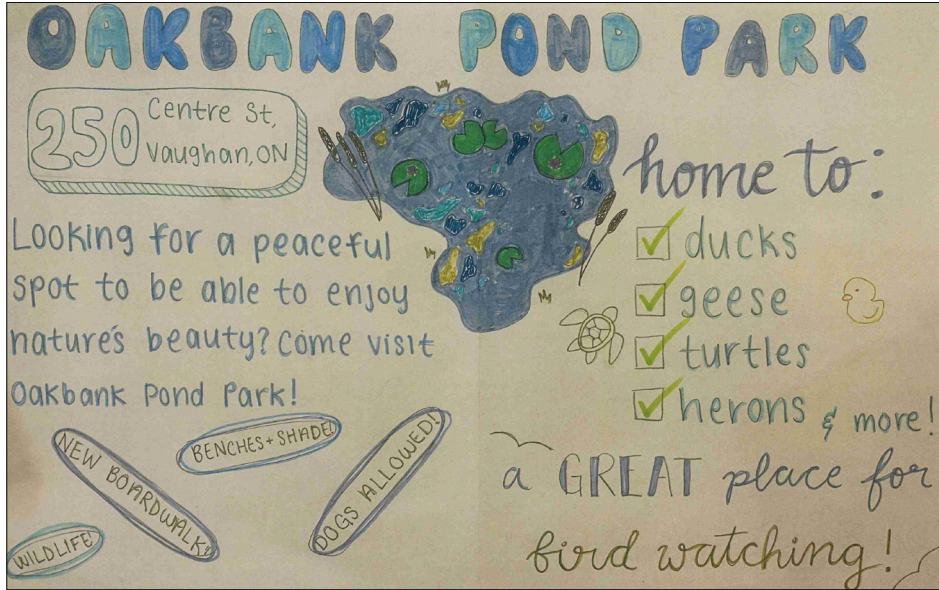 OAKBANK POND PARK
250 Centre St,
Vaughan, ON
Looking for a peaceful
spot to be able to enjoy
nature's beauty? Come visit
Oakbank Pond Park!
NEW BOARDWALK!
BENCHES + SHADE!
DOGS ALLOWED!
WILDLIFE!
home to:
ducks
geese
turtles
herons & more!
a GREAT place for
bird watching!